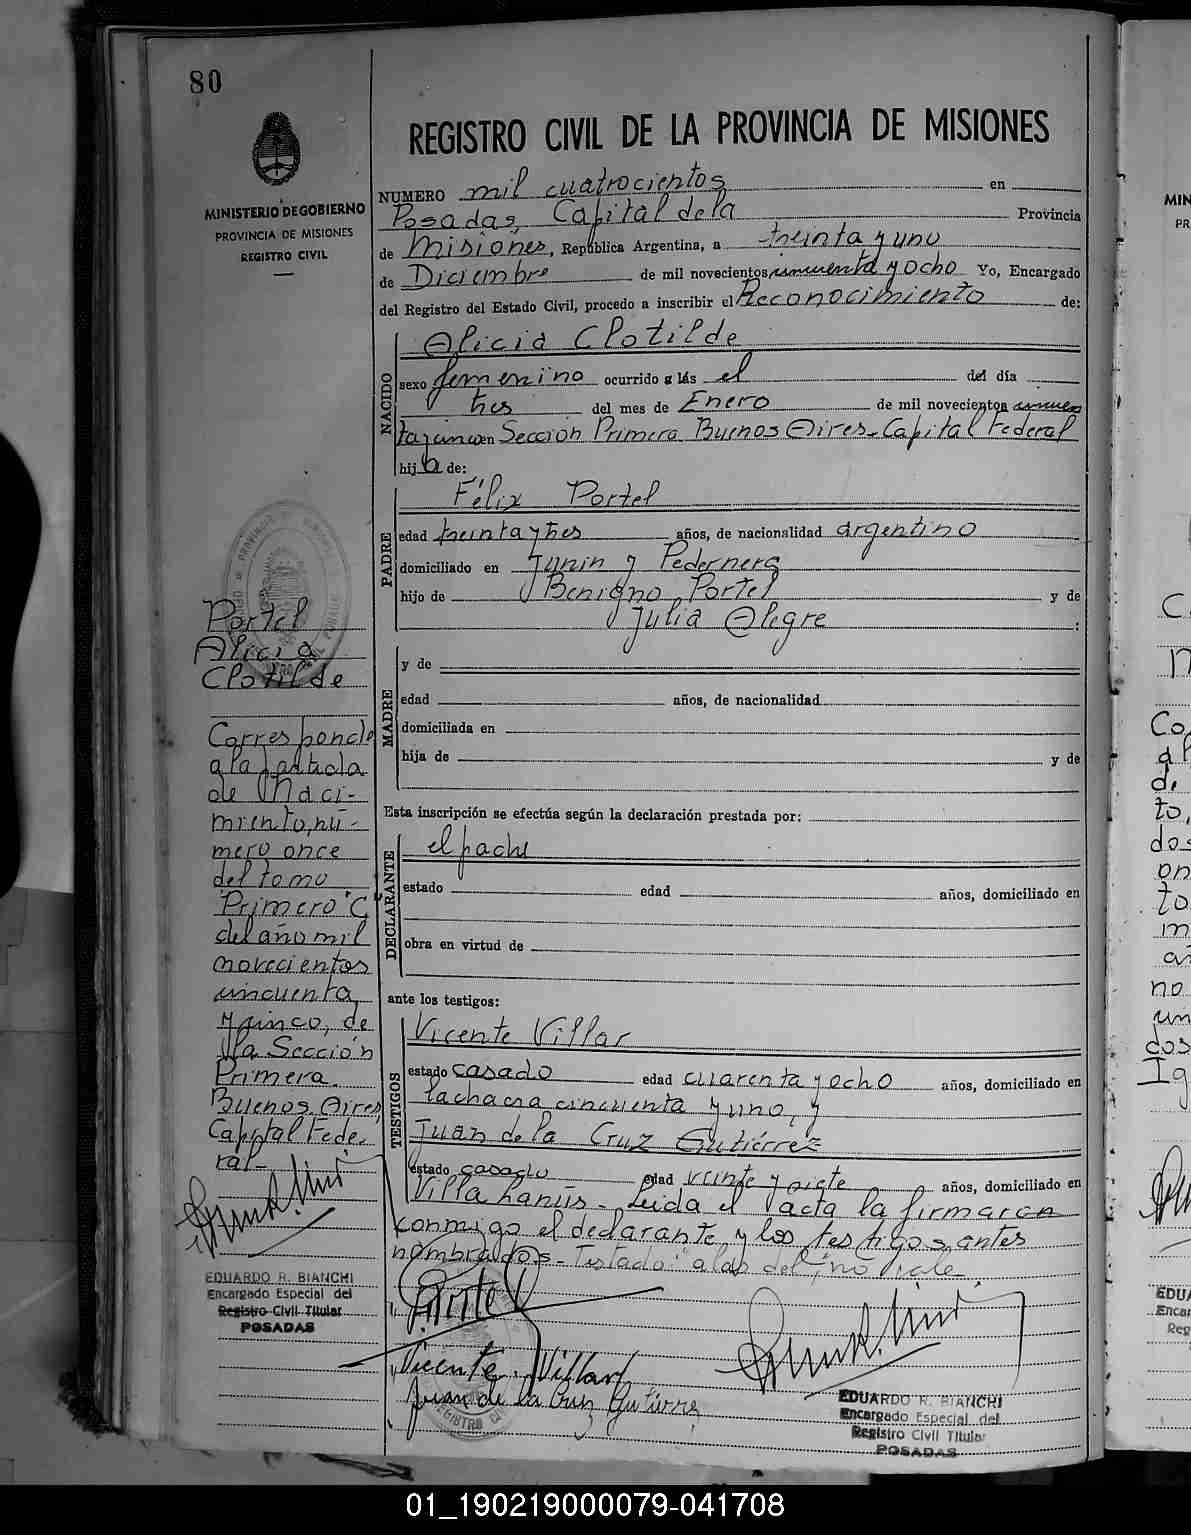 80
MINISTERIO DE GOBIERNO
PROVINCIA DE MISIONES
REGISTRO CIVIL
REGISTRO CIVIL DE LA PROVINCIA DE MISIONES
NUMERO mil cuatrocientos en
Posadas, Capital de la Provincia
de Misiones, República Argentina, a treinta y uno
de Diciembre de mil novecientos cincuenta y ocho Yo, Encargado
del Registro del Estado Civil, procedo a inscribir el Reconocimiento de:
NACIDO
Alicia Clotilde
sexo femenino ocurrido a lás el del día
tres del mes de Enero de mil novecientos cincuen
ta y cinco en Sección Primera Buenos Aires-Capital Federal
hija de:
PADRE
Félix Portel
edad treinta y tres años, de nacionalidad argentino
domiciliado en Junin y Pedernera
hijo de Benigno Portel y de
Julia Alegre :
MADRE
y de
edad años, de nacionalidad
domiciliada en
hija de y de
Esta inscripción se efectúa según la declaración prestada por:
DECLARANTE
el padre
estado edad años, domiciliado en
obra en virtud de
ante los testigos:
TESTIGOS
Vicente Villar
estado casado edad cuarenta y ocho años, domiciliado en
la chacra cincuenta y uno, y
Juan de la Cruz Gutiérrez
estado casado edad veinte y siete años, domiciliado en
Villa Lanús - Leida el acta la firmaron
conmigo el declarante y los testigos antes
nombrados - Testado "a las del", no vale.
Portel
Vicente Villar
Juan de la Cruz Gutierrez
EDUARDO R. BIANCHI
Encargado Especial del
Registro Civil Titular
POSADAS
Portel
Alicia
Clotilde
Corresponde
a la partida
de Naci-
miento, nú-
mero once
del tomo
Primero "C"
del año mil
novecientos
cincuenta
y cinco, de
la Sección
Primera.
Buenos Aires,
Capital Fede-
ral-
EDUARDO R. BIANCHI
Encargado Especial del
Registro Civil Titular
POSADAS
01_190219000079-041708